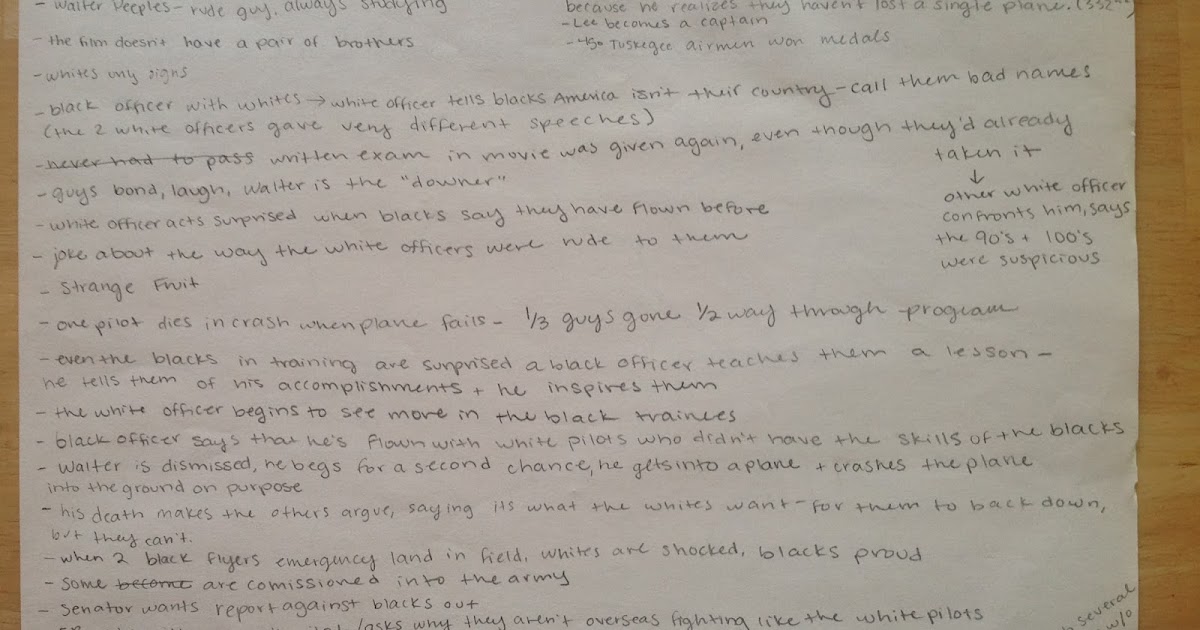 - Walter Peoples - rude guy. always studying
because he realizes they haven't lost a single plane. (332nd)
- Lee becomes a captain
- 450 Tuskegee airmen won medals
- the film doesn't have a pair of brothers
- whites only signs
- black officer with whites → white officer tells blacks America isn't their country - call them bad names
(the 2 white officers gave very different speeches)
- never had to pass written exam in movie was given again, even though they'd already
taken it
↓
other white officer
confronts him, says
the 90's + 100's
were suspicious
- guys bond, laugh, Walter is the "downer"
- white officer acts surprised when blacks say they have flown before
- joke about the way the white officers were rude to them
- Strange Fruit
- one pilot dies in crash when plane fails - 1/3 guys gone 1/2 way through program
- even the blacks in training are surprised a black officer teaches them a lesson -
he tells them of his accomplishments + he inspires them
- the white officer begins to see more in the black trainees
- black officer says that he's flown with white pilots who didn't have the skills of the blacks
- Walter is dismissed, he begs for a second chance, he gets into a plane + crashes the plane
into the ground on purpose
- his death makes the others argue, saying its what the whites want - for them to back down,
but they can't.
- when 2 black flyers emergency land in field, whites are shocked, blacks proud
- some become are comissioned into the army
- Senator wants report against blacks out
asks why they aren't overseas fighting like the white pilots
several
w/o